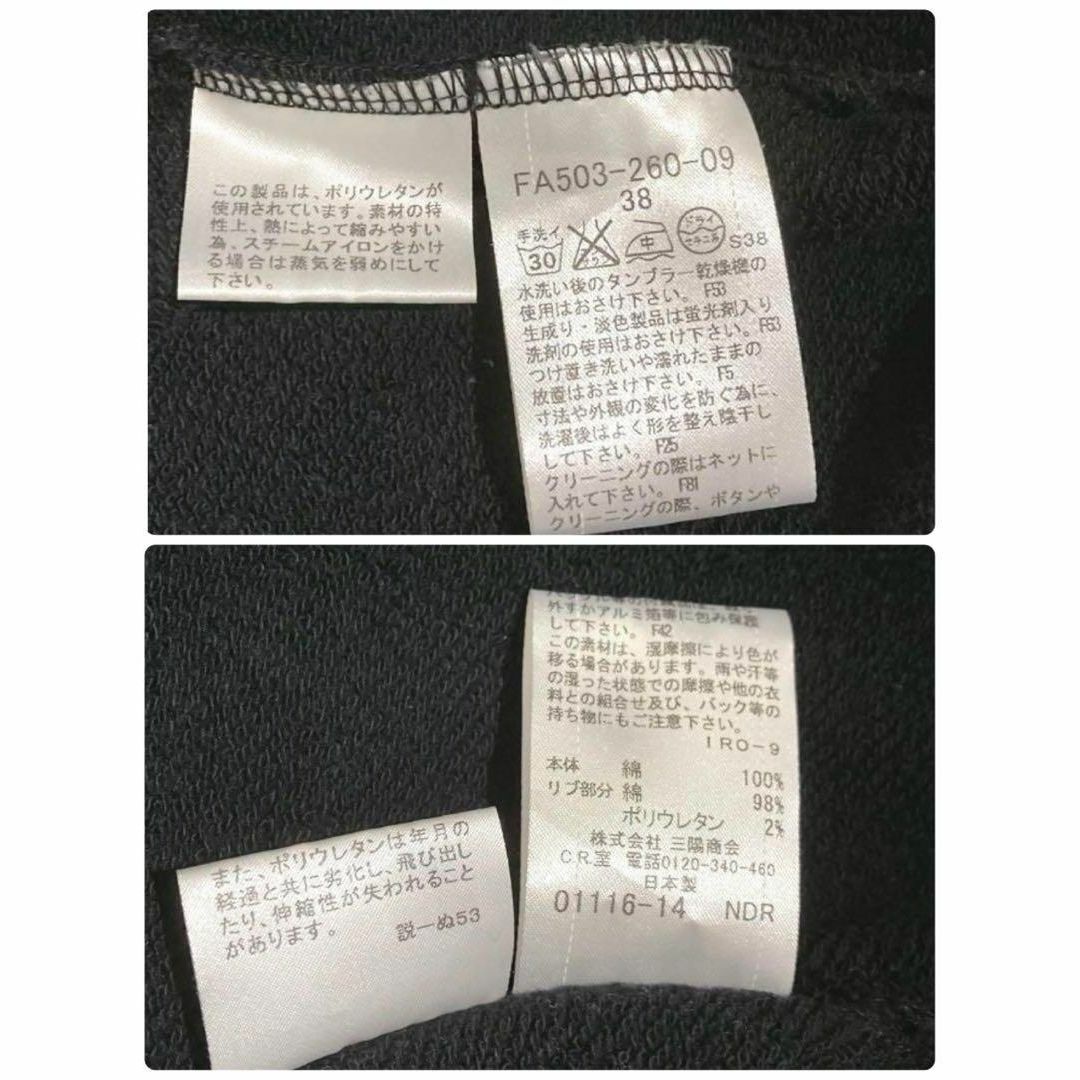 この製品は、ポリウレタンが
使用されています。素材の特
性上、熱によって縮みやすい
為、スチームアイロンをかけ
る場合は蒸気を弱めにして
下さい。
FA503-260-09
38
手洗イ
30
中
ドライ
S38
水洗い後のタンブラー乾燥機の
使用はおさけ下さい。F53
生成り・淡色製品は蛍光剤入り
洗剤の使用はおさけ下さい。F63
つけ置き洗いや濡れたままの
放置はおさけ下さい。F5
寸法や外観の変化を防ぐ為に、
洗濯後はよく形を整え陰干し
して下さい。F25
クリーニングの際はネットに
入れて下さい。F81
クリーニングの際、ボタンや
外すかアルミ箔等に包み保護
して下さい。F42
この素材は、湿摩擦により色が
移る場合があります。雨や汗等
の湿った状態での摩擦や他の衣
料との組合せ及び、バック等の
持ち物にもご注意下さい。
IRO-9
本体 綿 100%
リブ部分 綿 98%
ポリウレタン 2%
株式会社 三陽商会
C.R.室 電話0120-340-460
日本製
01116-14 NDR
また、ポリウレタンは年月の
経過と共に劣化し、飛び出し
たり、伸縮性が失われること
があります。 説ーぬ53